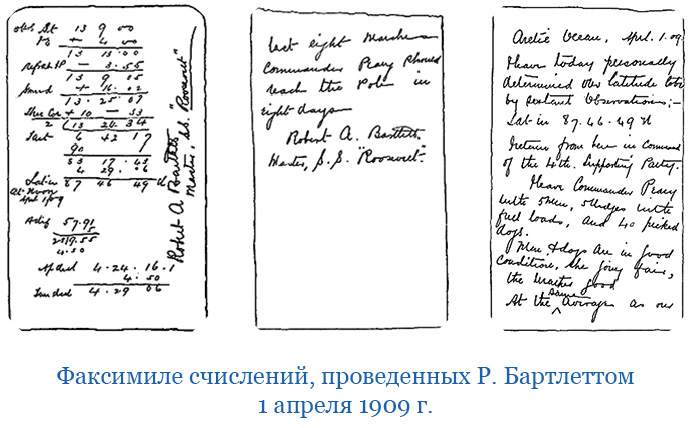 Obs. Alt 13 9 00
+ 4 00
13 13.00
Refract & P - 3.55
13 9 05
+ 16.02
13.25.07
+ 10 - 33
2 13 24 34
6 42 17
90
83 17 43
4 29 06
Lat in 87 46 49 N
At Noon
April 1/09
57.91
4.50
Ap decl 4.24.16.1
4.50
True decl 4.29 06
Robert A. Bartlett
Master, S.S. "Roosevelt"
last eight Marches
Commander Peary should
reach the Pole in
eight days
Robert A. Bartlett
Master, S.S. "Roosevelt".
Arctic Ocean, Apl. 1.09.
Have today personally
determined our latitude
by sextant Observations;-
Lat in 87.46.49 N
I return from here in Command
of the 4th. Supporting Party.
I leave Commander Peary
with 5 Men, 5 Sledges with
full loads, and 40 picked
dogs.
Men & dogs are in good
condition. The going fair,
the weather good
At the same average as our
Факсимиле счислений, проведенных Р. Бартлеттом
1 апреля 1909 г.